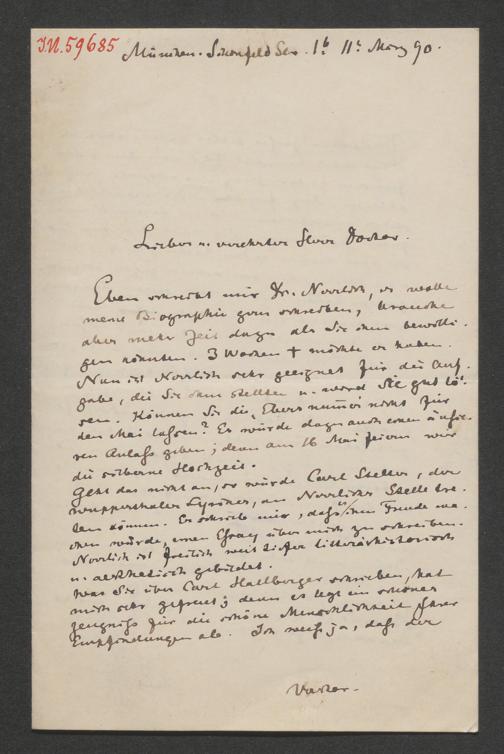 J.N. 59685
München. Schönfeld Str. 1b 11t. März 90.
Lieber u. verehrter Herr Doctor.
Eben schreibt mir Dr. Norrlich, er wolle
meine Biographie gern schreiben, brauche
aber mehr Zeit dazu als Sie ihm bewilli-
gen könnten. 3 Wochen + möchte er haben.
Nun ist Norrlich sehr geeignet für die Auf-
gabe, die Sie ihm stellten u. wird sie gut lö-
sen. Können Sie die „Ebersnummer" nicht für
den Mai lassen? Es würde dazu auch einen äuße-
ren Anlaß geben; denn am 16 Mai feiern wir
die silberne Hochzeit.
Geht das nicht an, so würde Carl Stelter, der
wupperthaler Lyriker, an Norrlichs Stelle tre-
ten können. Er schrieb mir, daß es ihm Freude ma-
chen würde, einen Essay über mich zu schreiben.
Norrlich ist freilich weit tiefer litterärhistorisch
u. aesthetisch gebildet.
Was Sie über Carl Hallberger schrieben, hat
mich sehr gefreut; denn es legt ein schönes
Zeugniß für die schöne Menschlichkeit Ihrer
Empfindungen ab. Ich weiß ja, daß der